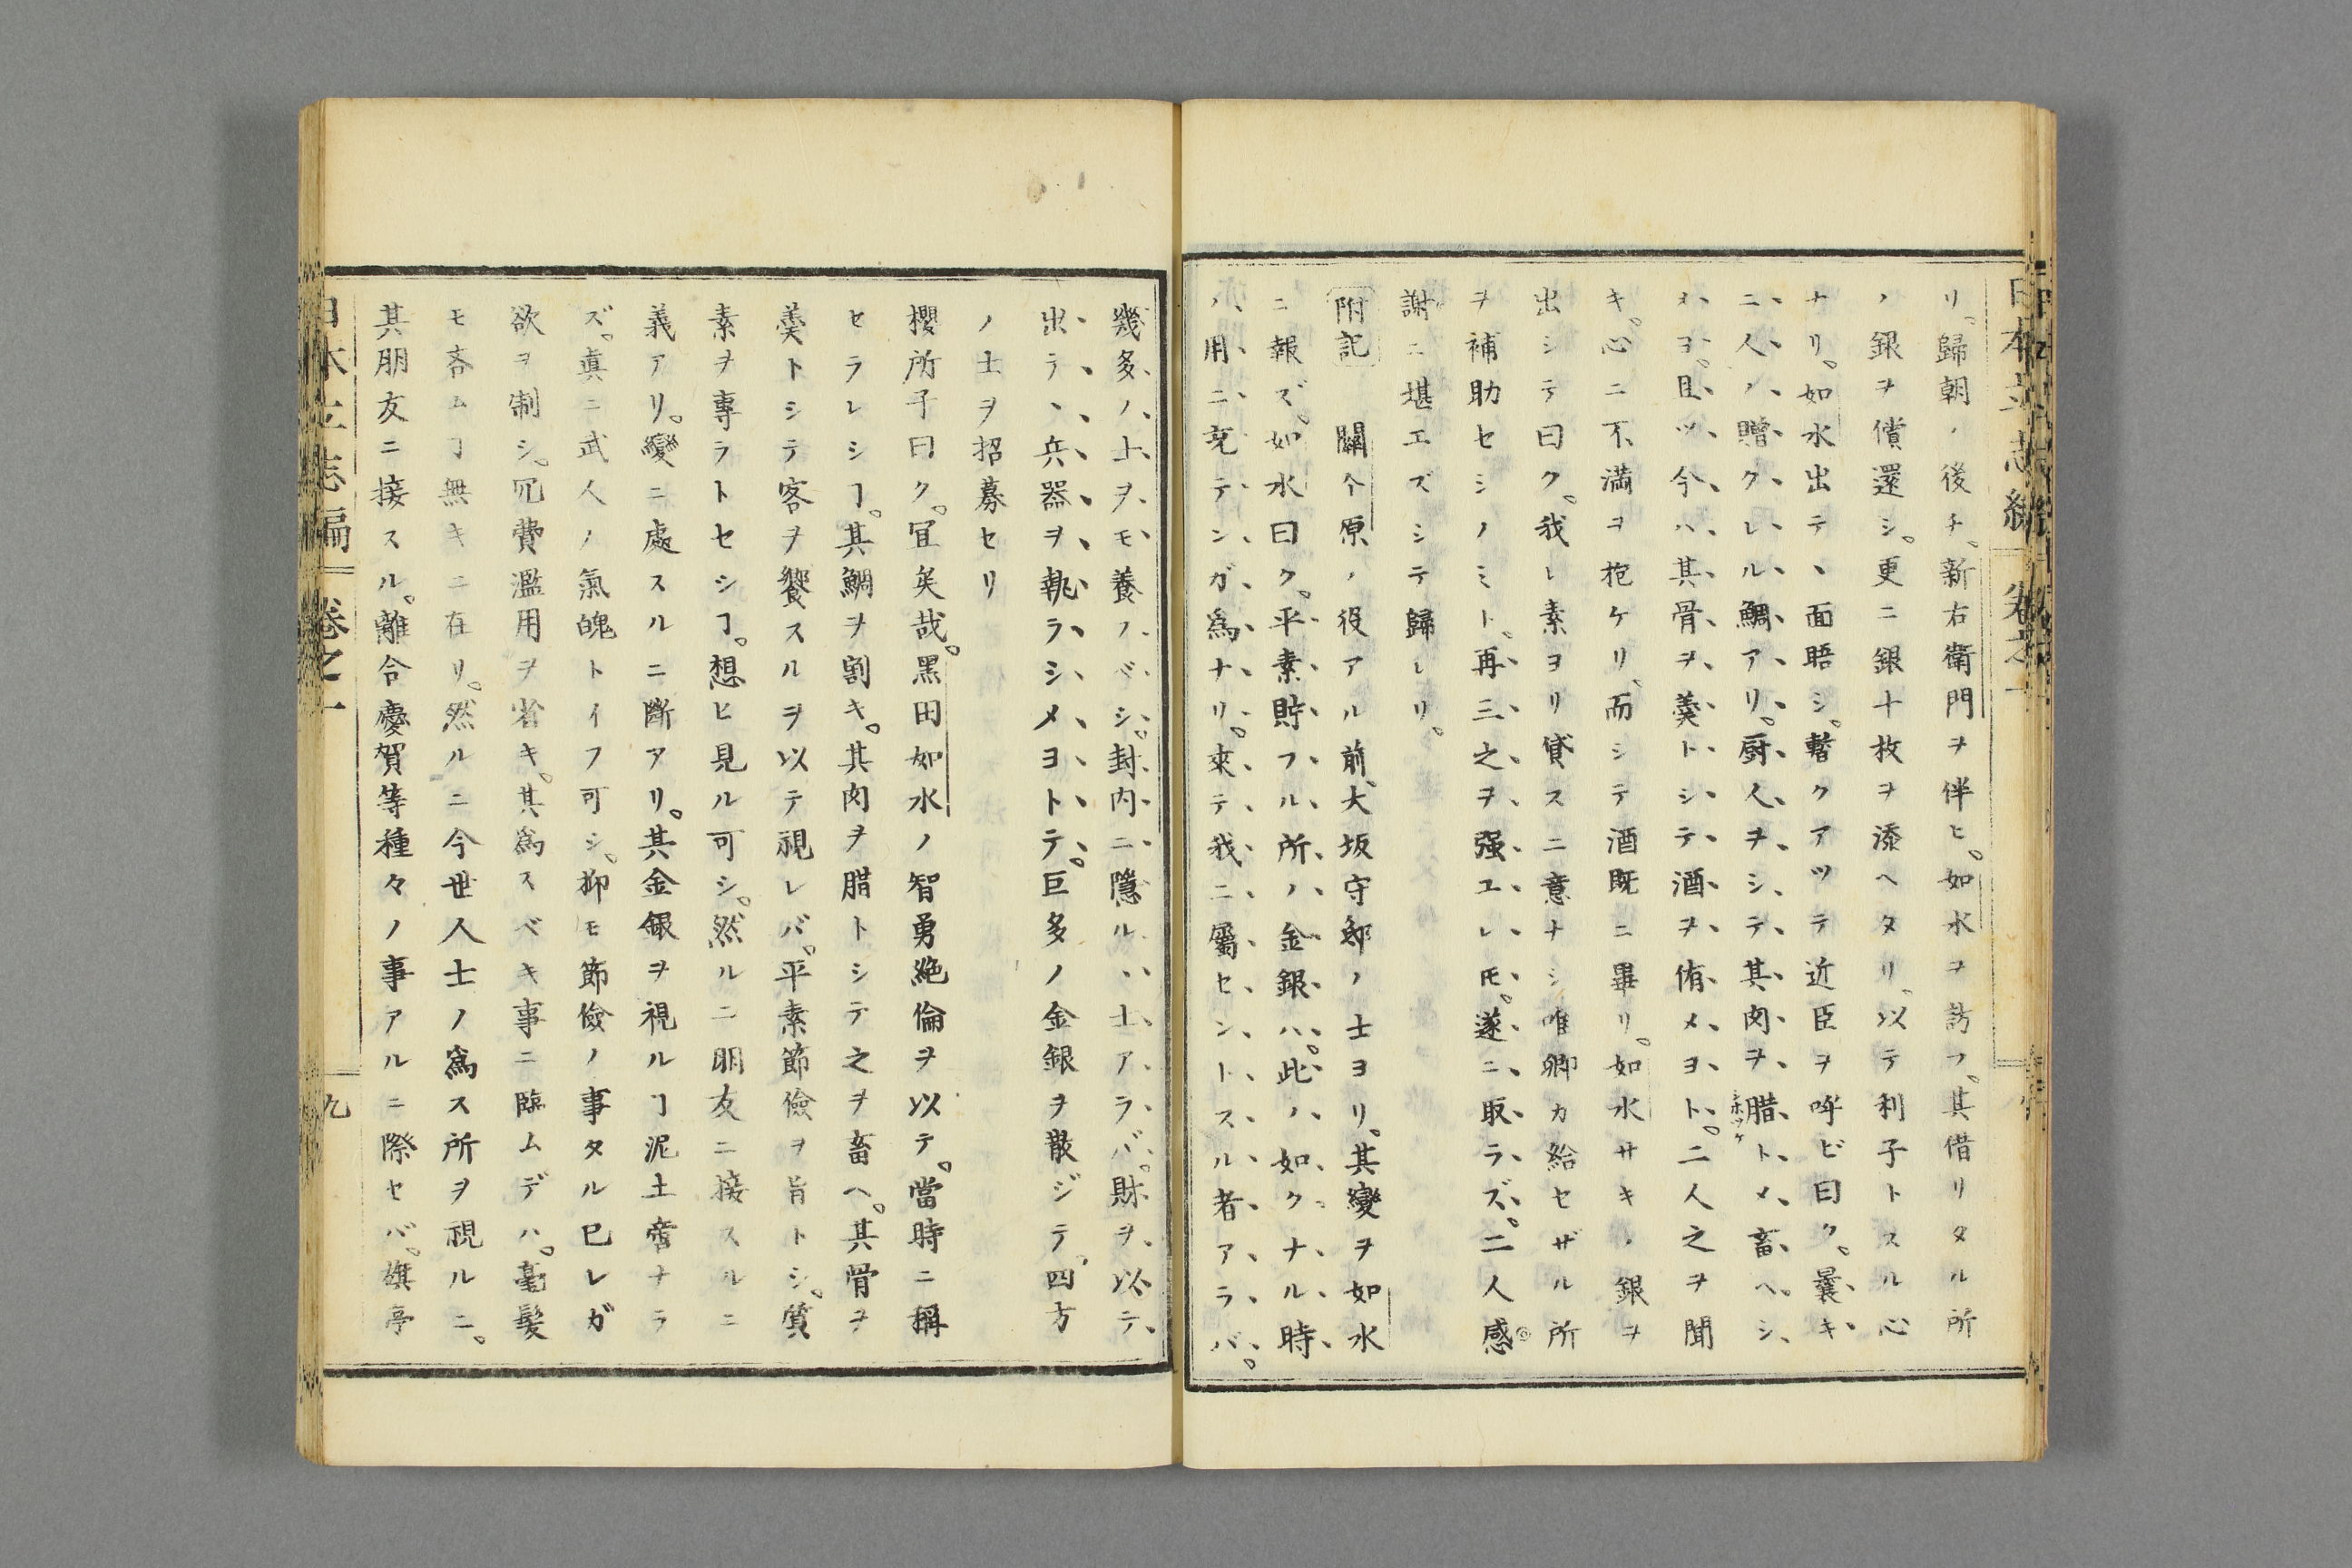 リ。歸朝ノ後チ。新右衛門ヲ伴ヒ。如水ヲ訪フ。其借リタル所
ノ銀ヲ償還シ。更ニ銀十枚ヲ添ヘタリ。以テ利子トスル心
ナリ。如水出テヽ面晤シ。暫クアツテ近臣ヲ呼ビ曰ク。曩キ
ニ人ノ贈クレル鯛アリ。厨人ヲシテ其肉ヲ腊トメ畜ヘ。シ
メヨ。且ツ今ハ其骨ヲ羹トシテ酒ヲ侑メヨト。二人之ヲ聞
キ。心ニ不満ヲ抱ケリ。而シテ酒既ニ畢リ。如水サキノ銀ヲ
出シテ曰ク。我レ素ヨリ貸スニ意ナシ唯卿カ給セザル所
ヲ補助セシノミト。再三之ヲ强エレ𪜈。遂ニ取ラズ。二人感
謝ニ堪エズシテ歸レリ。
附記 關个原ノ役アル前、大坂守邸ノ士ヨリ。其變ヲ如水
ニ報ズ。如水曰ク。平素貯フル所ノ金銀ハ。此ノ如クナル時
ノ用ニ充テンガ爲ナリ。來テ我ニ屬セントスル者アラバ。
幾多ノ上ヲモ養フベシ。封内ニ隱ルヽ士アラバ。財ヲ以テ
出テヽ兵器ヲ執ラシメヨトテ。巨多ノ金銀ヲ散ジテ。四方
ノ士ヲ招募セリ
櫻所子曰ク。宜矣哉。黑田如水ノ智勇絶倫ヲ以テ。當時ニ稱
セラレシヿ。其鯛ヲ割キ。其肉ヲ腊トシテ之ヲ畜ヘ。其骨ヲ
羹トシテ客ヲ饗スルヲ以テ視レバ。平素節儉ヲ旨トシ。質
素ヲ專ラトセシヿ。想ヒ見ル可シ。然ルニ朋友ニ接スルニ
義アリ。變ニ處スルニ斷アリ。其金銀ヲ視ルヿ泥土啻ナラ
ズ。眞ニ武人ノ氣魄トイフ可シ。抑モ節儉ノ事タル已レガ
欲ヲ制シ。冗費濫用ヲ省キ。其爲スベキ事ニ臨ムデハ。毫髮
モ吝ムヿ無キニ在リ。然ルニ今世人士ノ爲ス所ヲ視ルニ。
其朋友ニ接スル。離合慶賀等種々ノ事アルニ際セバ。旗亭
日本立志編 卷之一 九